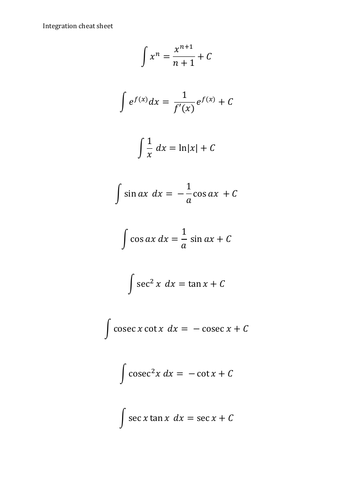 Integration cheat sheet
∫ xⁿ = xⁿ⁺¹/(n + 1) + C
∫ e^{f(x)} dx = 1/f′(x) e^{f(x)} + C
∫ 1/x dx = ln|x| + C
∫ sin ax dx = − 1/a cos ax + C
∫ cos ax dx = 1/a sin ax + C
∫ sec² x dx = tan x + C
∫ cosec x cot x dx = − cosec x + C
∫ cosec² x dx = − cot x + C
∫ sec x tan x dx = sec x + C